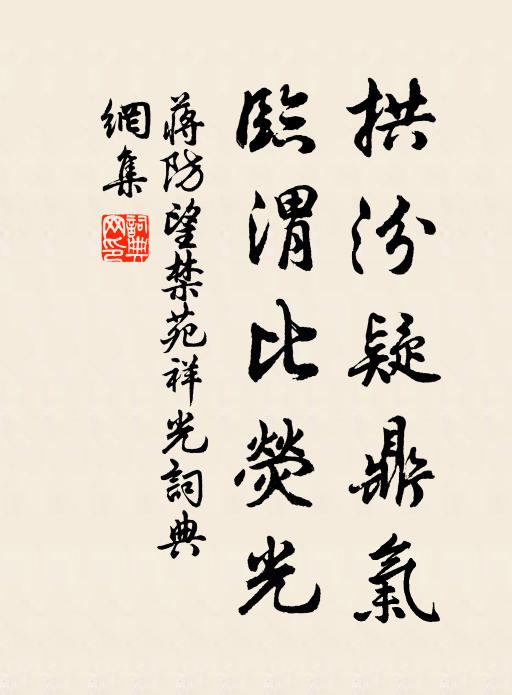 拱汾疑鼎氣
臨渭比熒光
蔣防望禁苑祥光詞典
網集
詞典網印